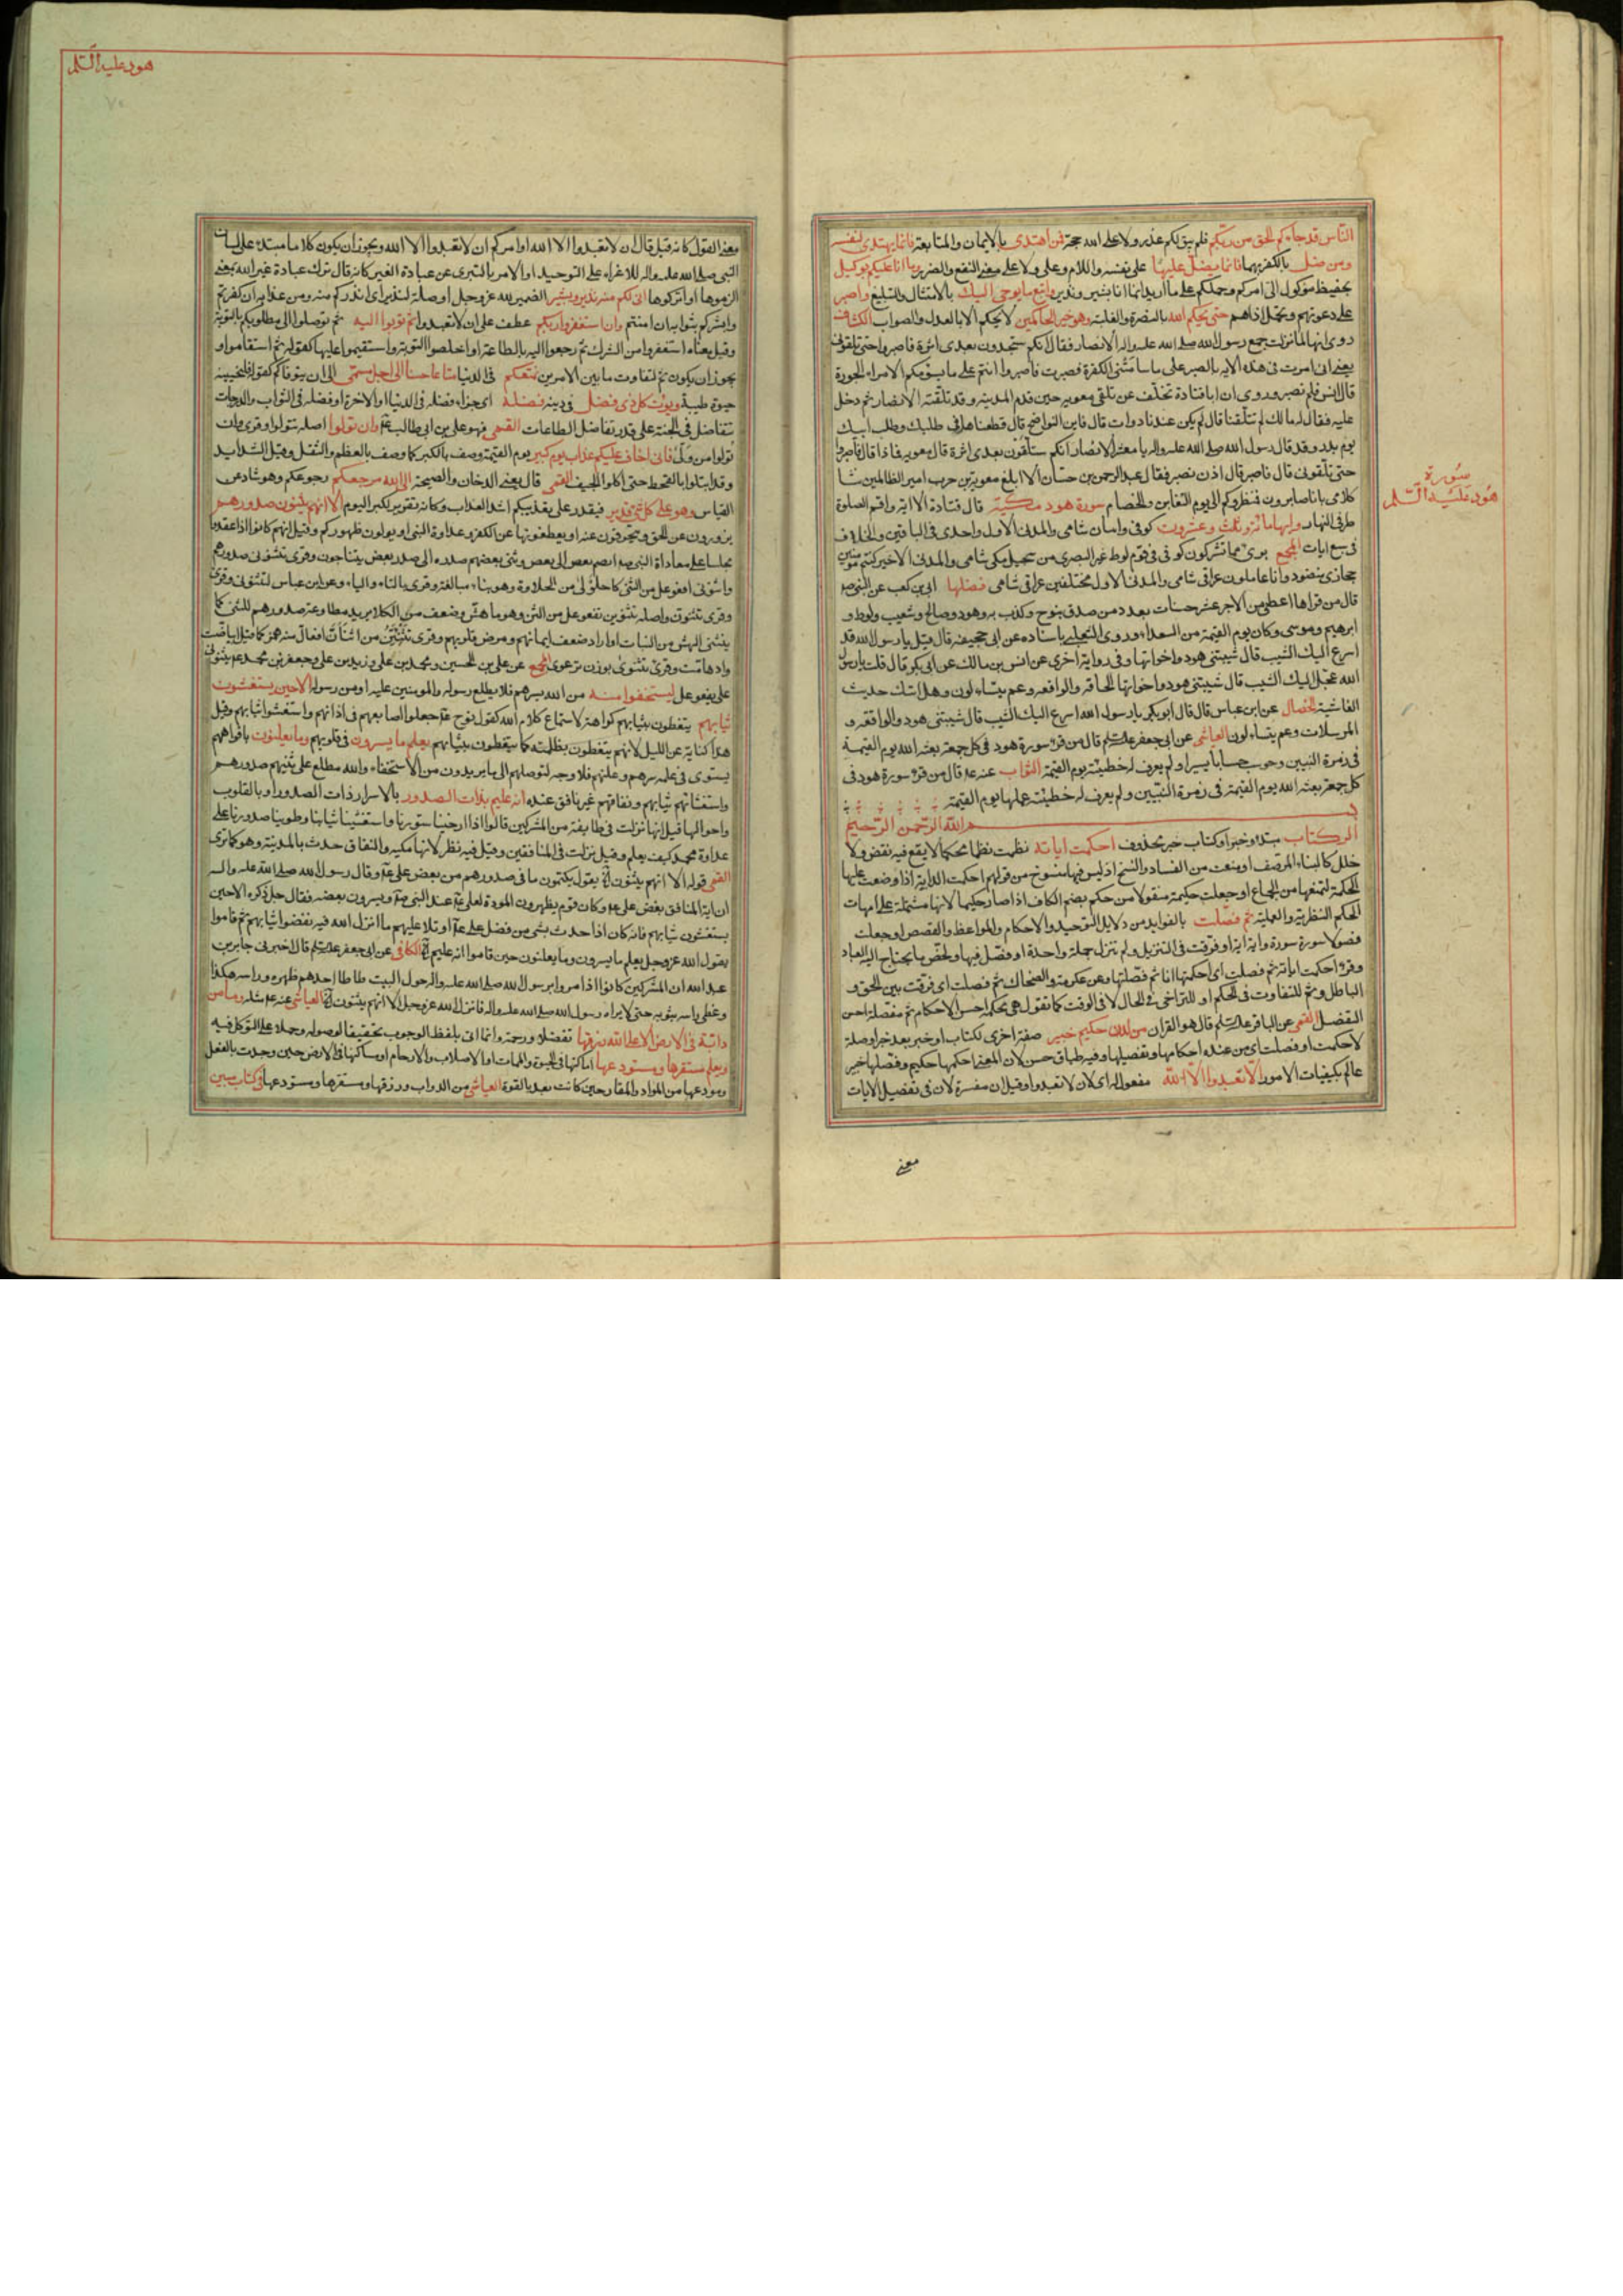 الناس قد جاءكم الحق من ربكم فلم يبق لكم عذر ولا على الله حجة فمن اهتدى بالايمان والمتابعة فانما يهتدى لنفسه
ومن ضل بالكفر بهما فانما يضل عليها على نفسه واللام وعلى ولا على معنى النفع والضرر وما انا عليكم بوكيل
بحفيظ موكول الى امركم وحملكم على ما اريد انما انا بشير ونذير واتبع ما يوحى اليك بالامتثال والتبليغ واصبر
على دعوتهم وتحمل اذاهم حتى يحكم الله بالنصرة والغلبة وهو خير الحاكمين لا يحكم الا بالعدل والصواب الكشاف
روى انها لما نزلت جمع رسول الله صلى الله عليه واله الانصار فقال انكم ستجدون بعدى اثرة فاصبروا حتى تلقونى
يعنى انى امرت فى هذه الاية بالصبر على ما سامتنى الكفرة فصبرت فاصبروا انتم على ما يسومكم الامراء الجورة
قال انس فلم نصبر وروى ان ابا قتادة تخلف عن تلقى معوية حين قدم المدينة وقد تلقته الانصار ثم دخل
عليه فقال له مالك لم تتلقنا قال لم يكن عندنا دواب قال فاين النواضح قال قطعناها فى طلبك وطلب ابيك
يوم بدر وقد قال رسول الله صلى الله عليه واله يا معشر الانصار انكم ستلقون بعدى اثرة قال معوية فماذا قال قال فاصبروا
حتى تلقونى قال فاصبر قال اذن نصبر فقال عبد الرحمن بن حسان الا ابلغ معوية بن حرب امير الظالمين نثا
كلامى بانا صابرون فمنظروكم الى يوم التغابن والخصام سورة هود مكية قال قتادة الا اية واقم الصلوة
طرفى النهار وايها مائة وثلث وعشرون كوفى واثنتان شامى والمدنى الاول واحدى فى الباقين والخلاف
فى سبع ايات المجمع برىء مما تشركون كوفى فى قوم لوط غير البصرى من سجيل مكى شامى والمدنى الاخير كنتم مؤمنين
حجازى منضود وانا عاملون عراقى شامى والمدنى الاول مختلفين عراقى شامى فضلها ابى بن كعب عن النبى ص
قال من قراها اعطى من الاجر عشر حسنات بعدد من صدق بنوح وكذب به وهود وصالح وشعيب ولوط و
ابرهيم وموسى وكان يوم القيمة من السعداء وروى الثعلبى باسناده عن ابى جحيفة قال قيل يا رسول الله قد
اسرع اليك الشيب قال شيبتنى هود واخواتها وفى رواية اخرى عن انس بن مالك عن ابى بكر قال قلت يا رسول
الله عجل اليك الشيب قال شيبتنى هود واخواتها الحاقة والواقعة وعم يتساءلون وهل اتيك حديث
الغاشية الخصال عن ابن عباس قال قال ابو بكر يا رسول الله اسرع اليك الشيب قال شيبتنى هود والواقعة و
المرسلات وعم يتساءلون العياشى عن ابى جعفر عليه السلم قال من قرء سورة هود فى كل جمعة بعثه الله يوم القيمة
فى زمرة النبيين وحوسب حسابا يسيرا ولم يعرف له خطيئة يوم القيمة الثواب عنه ع قال من قرء سورة هود فى
كل جمعة بعثه الله يوم القيمة فى زمرة النبيين ولم يعرف له خطيئة عملها يوم القيمة
بسم الله الرحمن الرحيم
الر كتاب مبتدء وخبر او كتاب خبر محذوف احكمت اياته نظمت نظما محكما لا يقع فيه نقض ولا
خلل كالبناء المرصف او منعت من الفساد والنسخ اذ ليس فيها منسوخ من قولهم احكمت الدابة اذا وضعت عليها
الحكمة لتمنعها من الجماح او جعلت حكيمة منقولا من حكم بضم الكاف اذا صار حكيما لانها مشتملة على امهات
الحكم النظرية والعملية ثم فصلت بالفوايد من دلايل التوحيد والاحكام والمواعظ والقصص او جعلت
فصولا سورة سورة واية اية او فرقت فى التنزيل ولم تنزل جملة واحدة او فصل فيها ولخص ما يحتاج اليه العباد
وقرء احكمت اياته ثم فصلت اى احكمتها انا ثم فصلتها وعن عكرمة والضحاك ثم فصلت اى فرقت بين الحق و
الباطل وثم للتفاوت فى الحكم او للتراخى فى الحال لا فى الوقت كما تقول هى محكمة احسن الاحكام ثم مفصلة احسن
التفصيل القمى عن الباقر عليه السلم قال هو القران من لدن حكيم خبير صفة اخرى لكتاب او خبر بعد خبر او صلة
لاحكمت او فصلت اى من عنده احكامها وتفصيلها وفيه طباق حسن لان المعنى احكمها حكيم وفصلها خبير
عالم بكيفيات الامور الا تعبدوا الا الله مفعول له اى لان لا تعبدوا وقيل ان مفسرة لان فى تفصيل الايات
معنى
سورة
هود عليه السلم
هود عليه السلم
معنى القول كانه قيل قال ان لا تعبدوا الا الله او امركم ان لا تعبدوا الا الله ويجوز ان يكون كلاما مبتدء على لسان
النبى صلى الله عليه واله للاغراء على التوحيد او الامر بالتبرى عن عبادة الغير كانه قال ترك عبادة غير الله بمعنى
الزموها او اتركوها اننى لكم منه نذير وبشير الضمير لله عز وجل او صلة لنذير اى انذركم منه ومن عذابه ان كفرتم
وابشركم بثوابه ان امنتم وان استغفروا ربكم عطف على ان لا تعبدوا ثم توبوا اليه ثم توصلوا الى مطلوبكم بالتوبة
وقيل معناه استغفروا من الشرك ثم رجعوا اليه بالطاعة او اخلصوا التوبة واستقيموا عليها كقوله ثم استقاموا و
يجوز ان يكون ثم لتفاوت ما بين الامرين يمتعكم فى الدنيا متاعا حسنا الى اجل مسمى الى ان يتوفاكم كقوله فلنحيينه
حيوة طيبة ويؤت كل ذى فضل فى دينه فضله اى جزاء فضله فى الدنيا او الاخرة او فضله فى الثواب والدرجات
تتفاضل فى الجنة على قدر تفاضل الطاعات القمى فهو على بن ابى طالب ع وان تولوا اصله تتولوا وقرى وان
تولوا من ولى فانى اخاف عليكم عذاب يوم كبير يوم القيمة وصف بالكبر كما وصف بالعظم والثقل وقيل الشدايد
وقد ابتلوا بالقحط حتى اكلوا الجيف القمى قال يعنى الدخان والصيحة الى الله مرجعكم رجوعكم وهو شاذ عن
القياس وهو على كل شىء قدير فيقدر على تعذيبكم اشد العذاب وكانه تقرير لكبر اليوم الا انهم يثنون صدورهم
يزورون عن الحق وينحرفون عنه او يعطفونها عن الكفر وعداوة النبى او يولون ظهورهم وقيل انهم كانوا اذا عقدوا
مجلسا على معاداة النبى ص انضم بعض الى بعض وثنى بعضهم صدره الى صدر بعض يتناجون وقرى تثنونى صدورهم
واثنونى افعوعل من الثنى كاحلولى من الحلاوة وهو بناء مبالغة وقرى بالتاء والياء وعن ابن عباس لتثنونى وقرى
وقرى تثنون واصله تثنونن تفعوعل من الثن وهو ما هش وضعف من الكلا يريد مطاوعة صدورهم للثنى كما
ينثنى الهش من النبات او اراد ضعف ايمانهم ومرض قلوبهم وقرى تثنئن من اثنان افعال منه همز كما قيل ابياضت
وادهامت وقرى تثنوى بوزن ترعوى المجمع عن على بن الحسين ومحمد بن على وزيد بن على وجعفر بن محمد ع يثنونى
على يفعوعل ليستخفوا منه من الله بسرهم فلا يطلع رسوله والمؤمنين عليه او من رسوله الا حين يستغشون
ثيابهم يتغطون بثيابهم كراهة لاستماع كلام الله كقول نوح ع جعلوا اصابعهم فى اذانهم واستغشوا ثيابهم وقيل
هذا كناية عن الليل لانهم يتغطون بظلمته كما يتغطون بثيابهم يعلم ما يسرون فى قلوبهم وما يعلنون بافواههم
يستوى فى علمه سرهم وعلنهم فلا وجه لتوصلهم الى ما يريدون من الاستخفاء والله مطلع على ثنيهم صدورهم
واستغشائهم ثيابهم ونفاقهم غير نافق عنده انه عليم بذات الصدور بالاسرار ذات الصدور او بالقلوب
واحوالها قيل انها نزلت فى طايفة من المشركين قالوا اذا ارخينا ستورنا واستغشينا ثيابنا وطوينا صدورنا على
عداوة محمد كيف يعلم وقيل نزلت فى المنافقين وقيل فيه نظر لانها مكية والنفاق حدث بالمدينة وهو كما ترى
القمى قوله الا انهم يثنون الخ يقول يكتمون ما فى صدورهم من بعض على ع وقال رسول الله صلى الله عليه واله
ان اية المنافق بغض على ع وكان قوم يظهرون المودة لعلى ع عند النبى ص ويسرون بغضه فقال جل ذكره الا حين
يستغشون ثيابهم فانه كان اذا حدث بشىء من فضل على ع او تلا عليهم ما انزل الله فيه نفضوا ثيابهم ثم قاموا
يقول الله عز وجل يعلم ما يسرون وما يعلنون حين قاموا انه عليم الخ الكافى عن ابى جعفر عليه السلم قال اخبرنى جابر بن
عبد الله ان المشركين كانوا اذا مروا برسول الله صلى الله عليه واله حول البيت طاطا احدهم ظهره وراسه هكذا
وغطى راسه بثوبه حتى لا يراه رسول الله صلى الله عليه واله فانزل الله عز وجل الا انهم يثنون الخ العياشى عنه ع مثله وما من
دابة فى الارض الا على الله رزقها تفضلا ورحمة وانما اتى بلفظ الوجوب تحقيقا لوصوله وحملا على التوكل فيه
ويعلم مستقرها ومستودعها اماكنها فى الحيوة والممات او الاصلاب والارحام او مساكنها فى الارض حين وجدت بالفعل
ومودعها من المواد والمقار حين كانت بعد بالقوة العياشى من الدواب ورزقها ومستقرها ومستودعها فى كتاب مبين